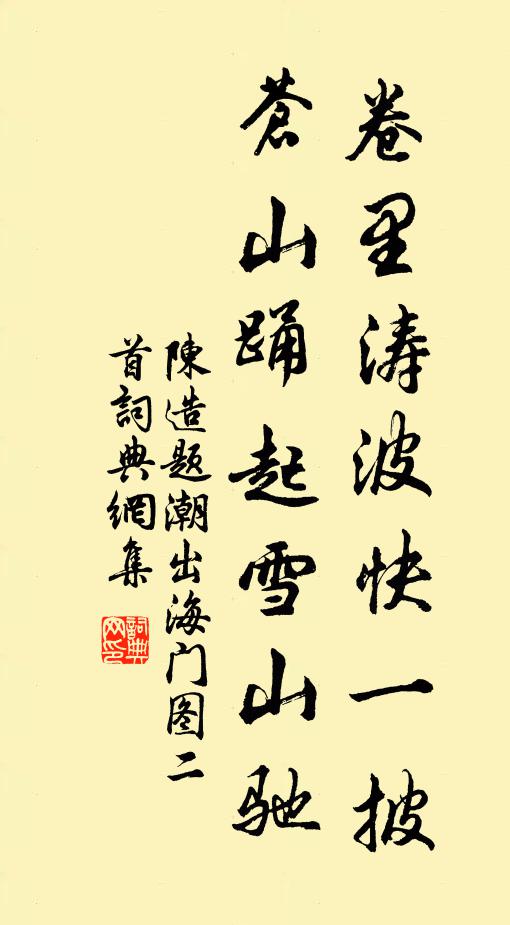 卷里涛波快一披
苍山踊起雪山驰
陳造题潮出海门图二
首詞典網集
詞典
网印